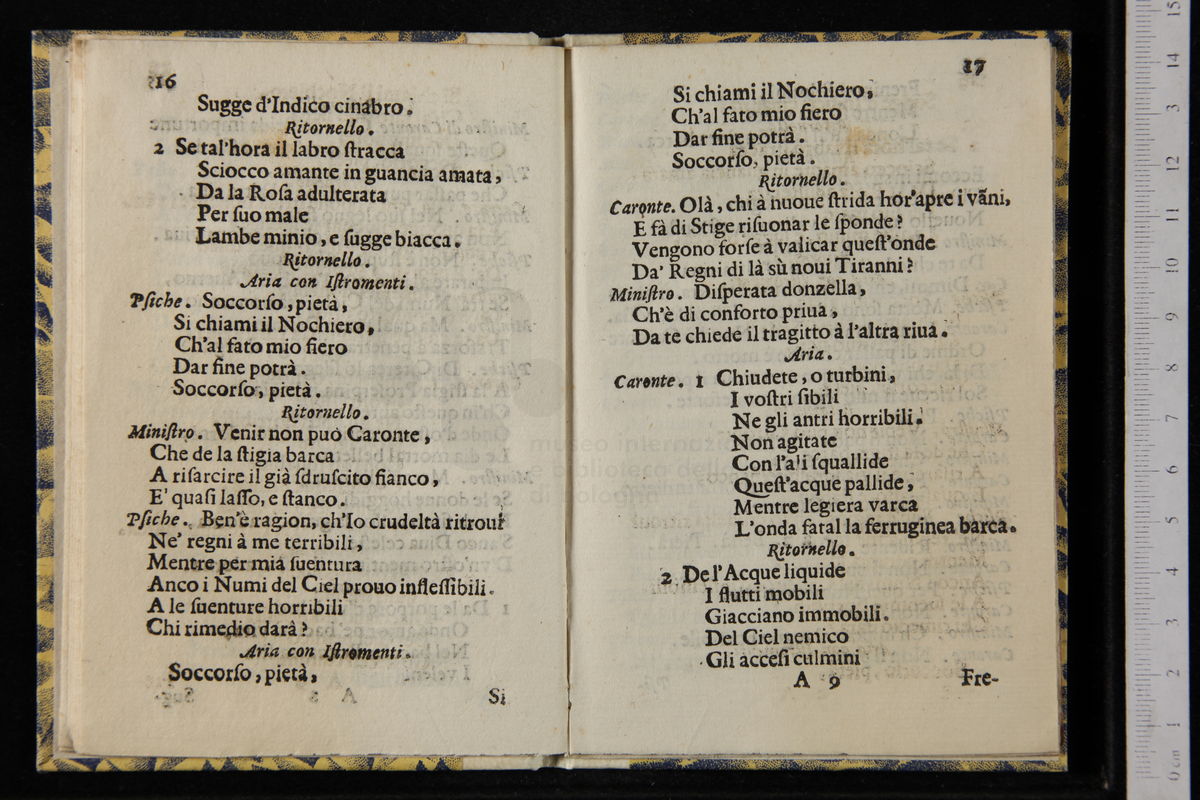 16
Sugge d'Indico cinabro.
Ritornello.
2 Se tal'hora il labro ſtracca
Sciocco amante in guancia amata,
Da la Roſa adulterata
Per ſuo male
Lambe minio, e ſugge biacca.
Ritornello.
Aria con Iſtromenti.
Pſiche. Soccorſo, pietà,
Si chiami il Nochiero,
Ch'al fato mio fiero
Dar fine potrà.
Soccorſo, pietà.
Ritornello.
Miniſtro. Venir non può Caronte,
Che de la ſtigia barca
A riſarcire il già ſdruſcito fianco,
E' quaſi laſſo, e ſtanco.
Pſiche. Ben'è ragion, ch'Io crudeltà ritroui
Ne' regni à me terribili,
Mentre per mia ſuentura
Anco i Numi del Ciel prouo infleſſibili.
A le ſuenture horribili
Chi rimedio darà?
Aria con Iſtromenti.
Soccorſo, pietà,
Si
17
Si chiami il Nochiero,
Ch'al fato mio fiero
Dar fine potrà.
Soccorſo, pietà.
Ritornello.
Caronte. Olà, chi à nuoue ſtrida hor'apre i vãni,
E fà di Stige riſuonar le ſponde?
Vengono forſe à valicar queſt'onde
Da' Regni di là sù noui Tiranni?
Miniſtro. Diſperata donzella,
Ch'è di conforto priua,
Da te chiede il tragitto à l'altra riua.
Aria.
Caronte. 1 Chiudete, o turbini,
I voſtri ſibili
Ne gli antri horribili.
Non agitate
Con l'ali ſquallide
Queſt'acque pallide,
Mentre legiera varca
L'onda fatal la ferruginea barca.
Ritornello.
2 De l'Acque liquide
I flutti mobili
Giacciano immobili.
Del Ciel nemico
Gli acceſi culmini
A 9 Fre-
museo internazionale
e biblioteca della
di bologna
15
14
13
12
11
10
9
8
7
6
5
4
3
2
1
0 cm